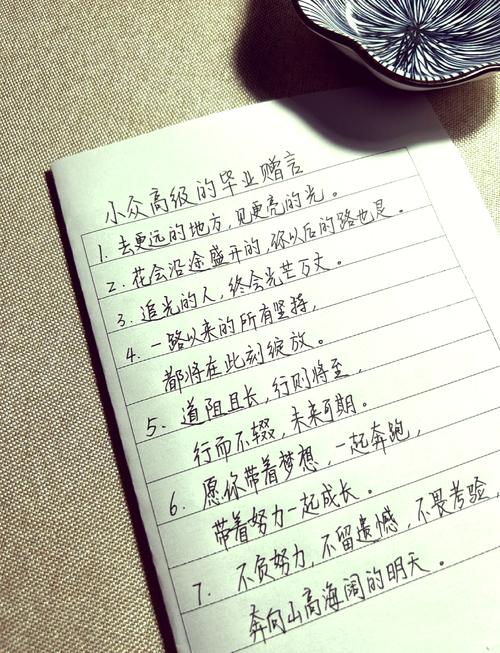 小众高级的毕业赠言
1. 去更远的地方,见更亮的光。
2. 花会沿途盛开的,你以后的路也是。
3. 追光的人,终会光芒万丈。
4. 一路以来的所有坚持,
都将在此刻绽放。
5. 道阻且长,行则将至,
行而不辍,未来可期。
6. 愿你带着梦想,一起奔跑,
带着努力一起成长。
7. 不负努力,不留遗憾,不畏考验,
奔向山高海阔的明天。